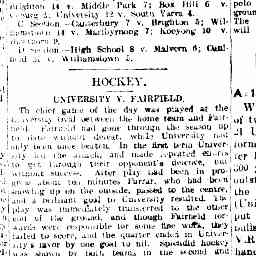 Brighton 14 v. Middle Park 7; Box Hill 6 v.
5; University 12 v. South Yarra 4.
C Section.—Canterbury 7 v. Brighton 5; Wil-
liamstown 14 v. Maribyrnong 7; Kooyong 10 v.
9.
D Section.—High School 8 v. Malvern 6; Cam-
v. Williamstown 5.
HOCKEY.
UNIVERSITY V. FAIRFIELD.
The chief game of the day was played at the
University oval between the home team and Fair-
field. Fairfield had gone through the season up
to date without defeat, while University had
only been once beaten. In the first term Univer-
sity for the attack, and made repeated
to get through their opponent's defence, but
without success. After play had been in pro-
gress about ten minutes Farrar, who had been
moving up on the outside, passed to the centre,
and a brilliant goal to University resulted. The
play was immediately transferred to the other
end of the ground, and though Fairfield for-
wards were responsible for some fine work, they
failed to score, and the quarter ended in Univer-
sity's favor by one goal to nil. Splendid hockey
was shown by both teams in the second and